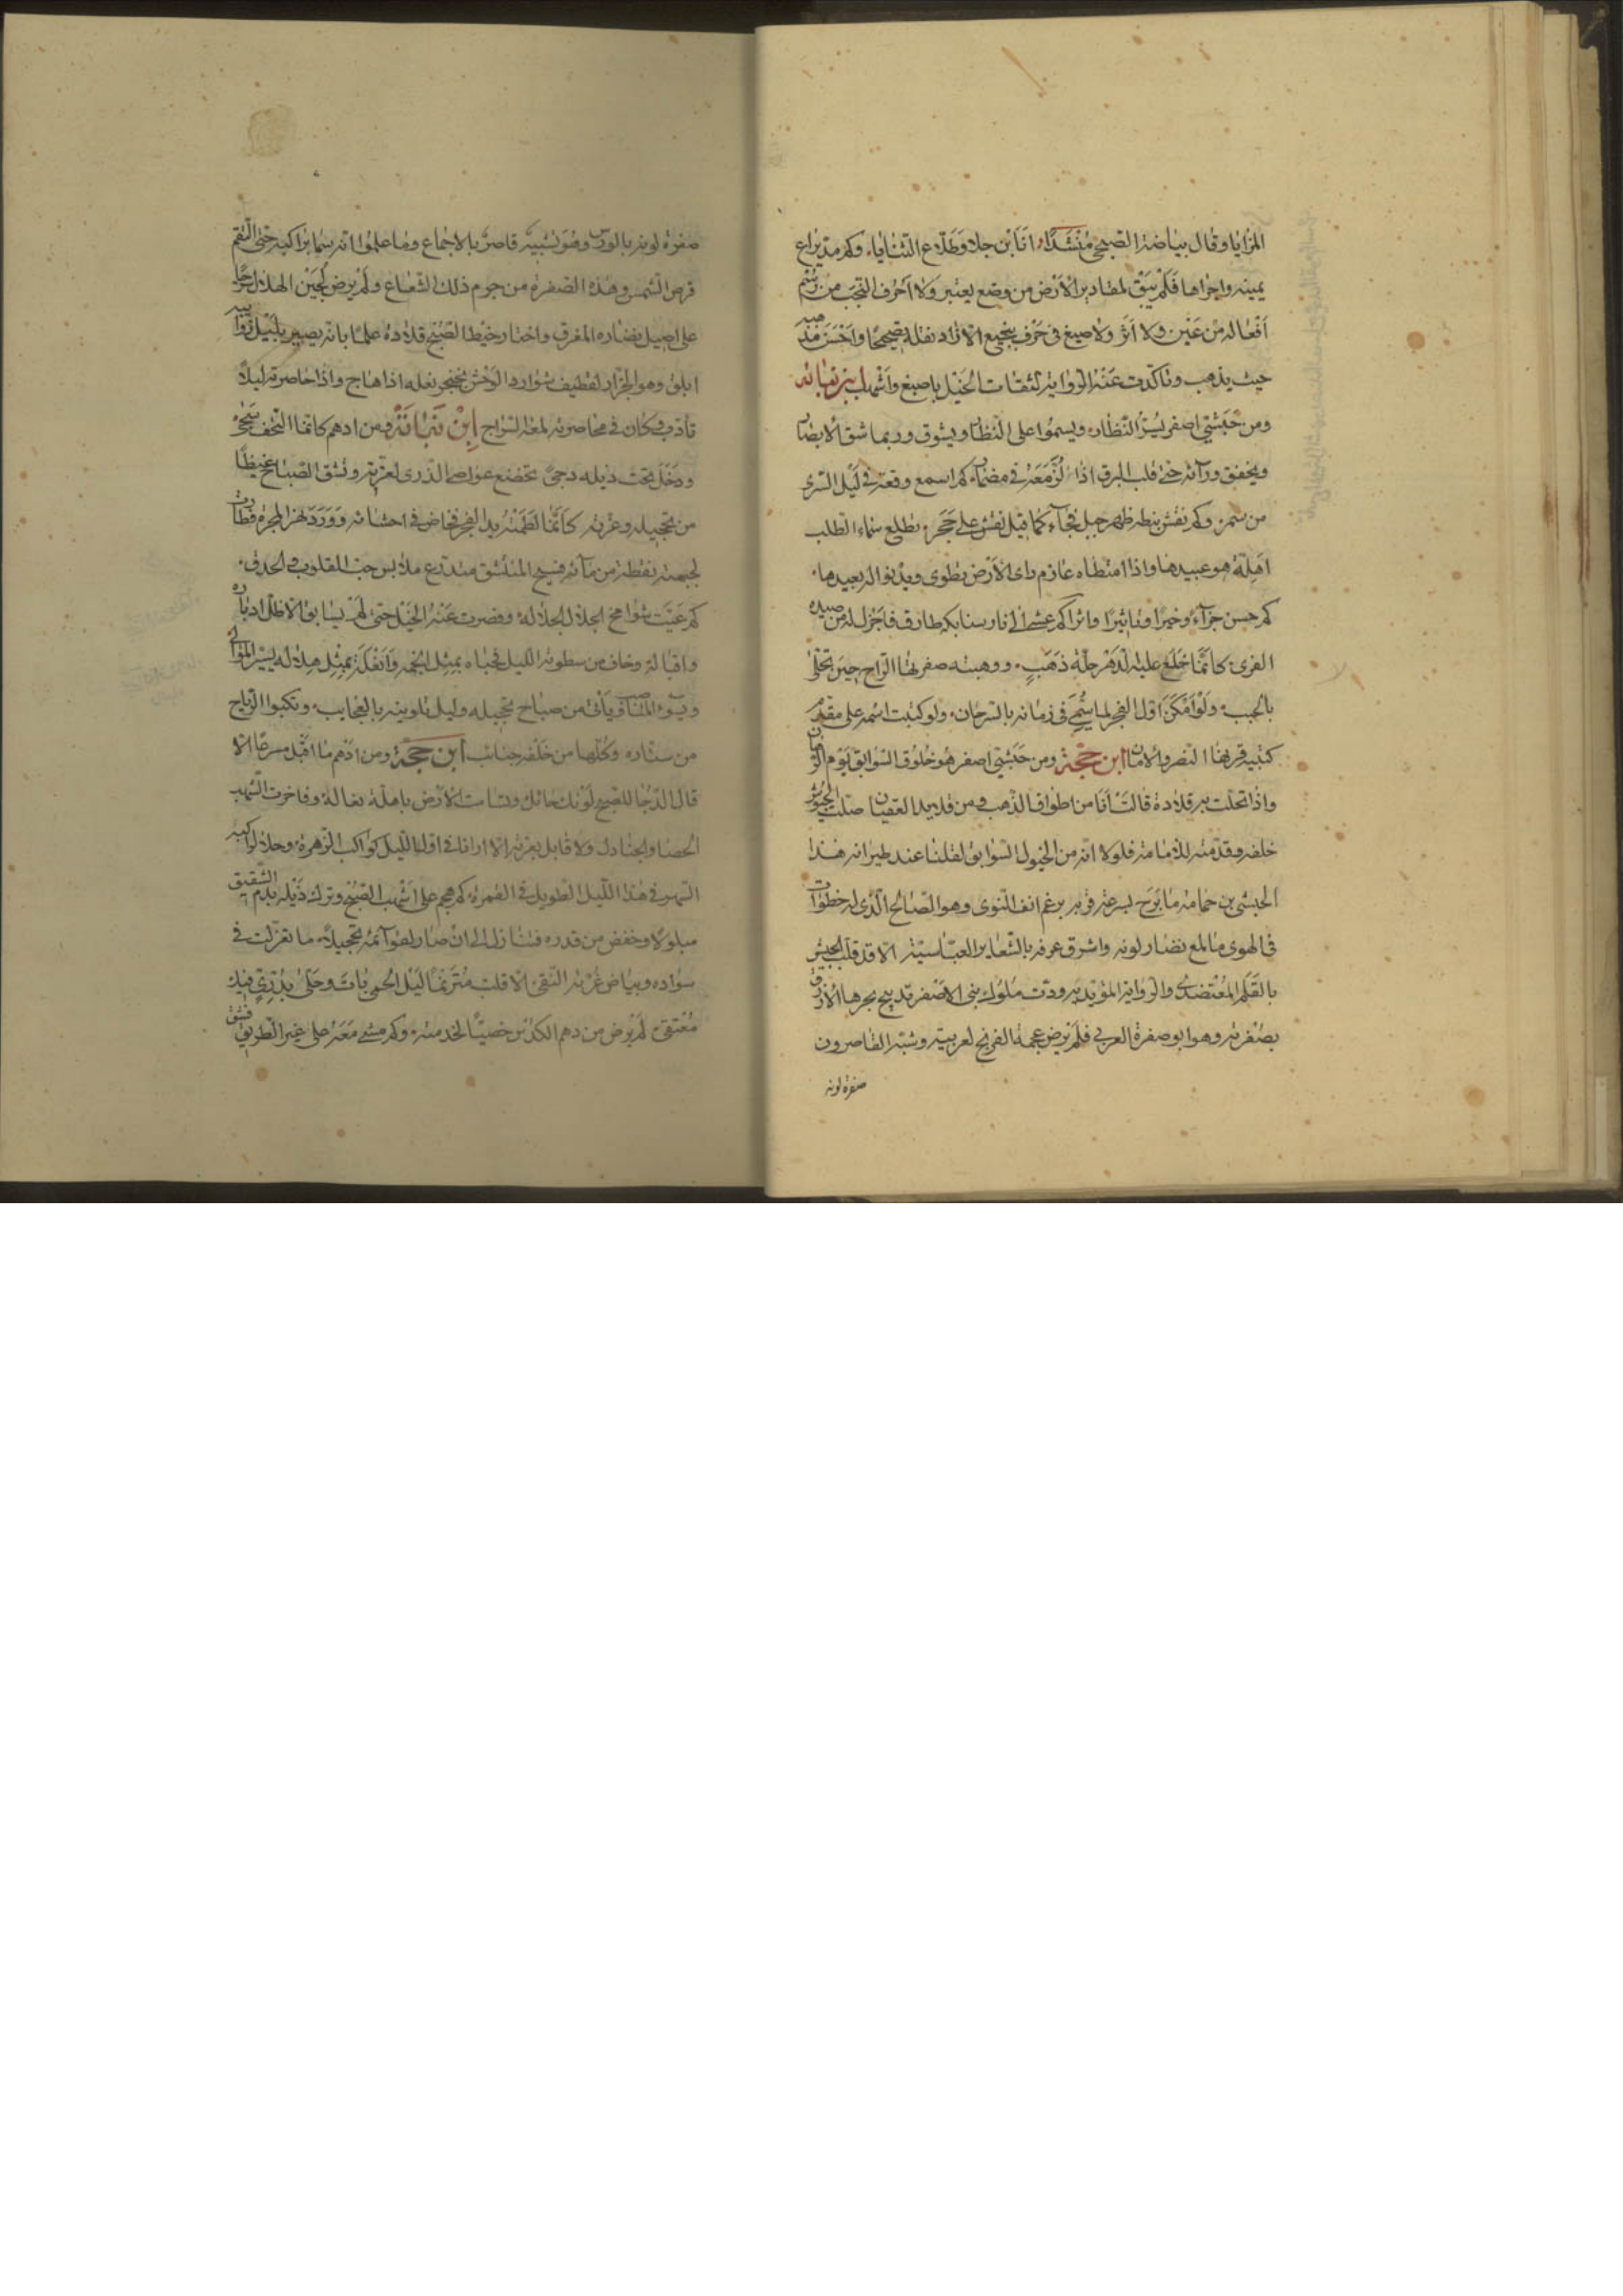 المزايا وقال بياضه الصبحي مُنشدًا، انا ابن جلا وطلاع الثنايا، وكم مد يراع
يمينه واجراها فلم يبق لمقادير الارض من وضع يعتبر ولا احرف التجب من رسم
افعاله من عين ولا اثر ولا صيغ في حرف بجميع الا اراد نقله صحيحا واحسن مذهبه
حيث يذهب وتاكدت عنه الرواية لثقات الخيل باصبغ واشهب ابن نباته
ومن حبشي اصفر يسر النظار، ويسموا على النظار ويشوق وربما شق الابصار
ويخفق ورآئه حتى قلب البرق اذا لز معه في مضمار، كم اسمع وقعه في ليل السرى
من سمر، وكم نقش بنعله ظهر جبل فجآء كما قيل نقش على حجر، تطلع سماء الطلب
اهلة هو عبيدها واذا امتطاه عازم راى الارض تطوى ويدنو اليه بعيدها،
كم حسن جزآء وخبرا وتاثيرا واثرا كم عشى الى نار سنابكه طارق فاجزل له من صيده
القرى، كانما خلع عليه الدهر حلة ذهب، ووهبته صفرتها الراح حين تحلى
بالحبب، ولو امكن اول الفجر لما سُمى في زمانه بالسرحان، ولو كتبت اسمه على مقدم
كتيبة قرنها النصر والامان ابن حجة ومن حبشي اصفر هو خلوق السوابق يوم الرهان
واذا تحلت به قلادة قالت انا من اطواق الذهب ومن قلايد العقيان صلت الجيوش
خلفه وقدمته للامامة فلولا انه من الخيول السوابق لقلنا عند طيرانه هذا
الحبشي بن حمامة ما برح لسرعة قربه برغم انف النوى وهو الصالح الذي له خطوات
في الهوى ما لمع نضار لونه واشرق عرفه بالشعاير العباسية الا قد قلب الجيش
بالقلم المعتضدى والرواية المؤيدية ودت ملوك بنى الاصفر تدبيج بحرها الازرق
بصفرته وهو ابو صفرة العربي فلم يرض عجمة الفرنج لعربيته وشبه القاصرون
صفرة لونه
صفرة لونه بالورس وهو تشبيه قاصر بالاجماع وما علموا انه سما براكبه حتى التقم
قرص الشمس وهذه الصفرة من جرم ذلك الشعاع ولم يرض لجين الهلال سرجا
على اصيل نضاره المغرق واختار خيط الصبح قلادة علما بانه يصير بليل ذوائبه
ابلق وهو الجزار لقطيف شوارد الوحش بخنجر نعله اذا هاج واذا حاصرته ليلا
تأدّب وكان في محاصرته لمعة السراج ابن نباتة ومن ادهم كانما التحف سبجه
ودخل تحت ذيله دجى تخضع عواصم الذرى لعزته وشق الصباح غيظا
من تحجيله وغرته كانما لطمته يد الفجر فخاض في احشائه وورد نهر المجرة فطارت
لجبهته نقطة من مآئه فسيح المنشق متدرع ملابس حب القلوب والحدق،
كم عنيت شوامخ الجلال لجلاله، وقصرت عنه الخيل حتى لم يسابق الا ظل ادباره
واقباله وخاف من سطوته الليل فحباه بمثل انجمه وانعله بمثل هلاله يسير الموالى
ويسوء المناصب ويأتى من صباح تحجيله وليل تلوينه بالعجايب، وتكبوا الرياح
من ستاره، وكلها من خلفه جنائب ابن حجة ومن ادهم ما اقبل مسرعا الا
قال الدجا للصبح لونك حائل وتسامت الارض باهلة نعاله، وفاخرت الشهب
الحصا والجنادل ولا قابل بغرته الا ارانا في اول الليل كواكب الزهرة، وحلا لراكبه
السهر في هذا الليل الطويل في القمرة، كم هجم على اشهب الصبح وترك ذيله بدم الشقيق
مبلولا وخفض من قدره فتنازل الى ان صار لقوآئمه تحجيلا، ما تغزلت في
سواده وبياض غرته النقى، الا قلت مترنما ليل الحمى بات وحلى بدرى فيك
معتنقى، لم يرض من دهم الكدش خصيا لخدمته، وكم مشى معه على غير الطريق فشق